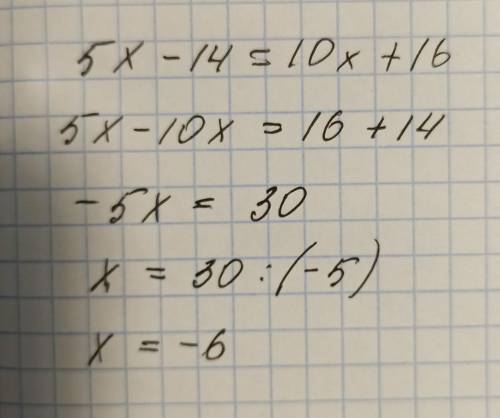 5x - 14 = 10x + 16
5x - 10x = 16 + 14
-5x = 30
x = 30 : (-5)
x = -6